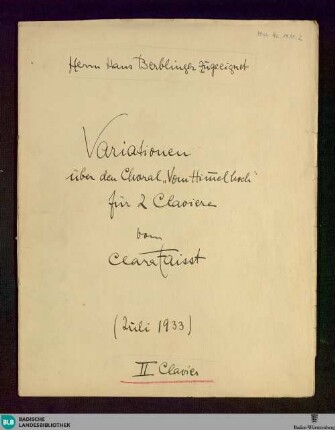 Herrn Hans Berblinger zugeeignet
Variationen
über den Choral „Vom Himmel hoch“
für 2 Claviere
von
Clara Faisst
(Juli 1933)
II Clavier
BLB BADISCHE
LANDESBIBLIOTHEK
Baden-Württemberg